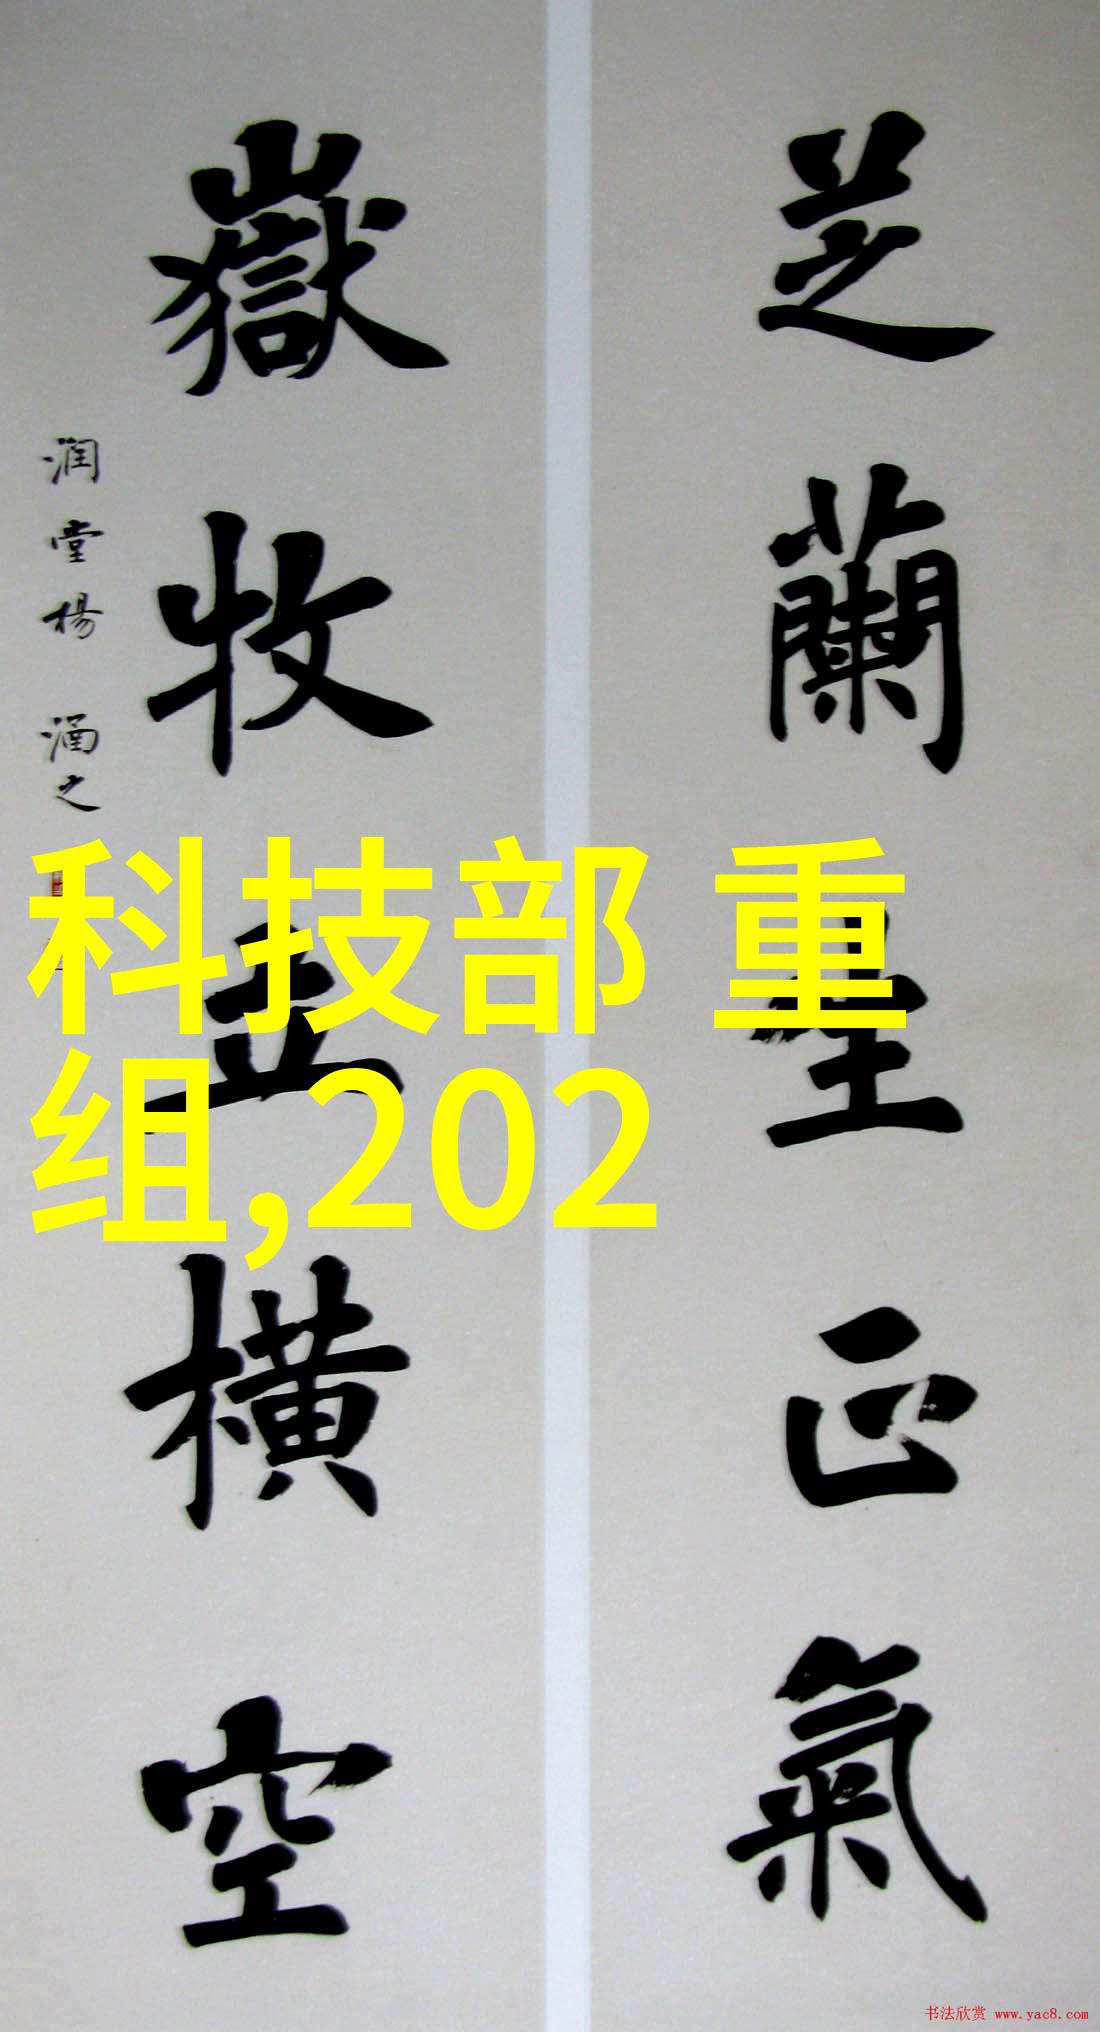 芝蘭
正氣
嶽牧
橫空
润堂楊 涵之
科技部 重
组,202
书法欣赏 www.yac8.com